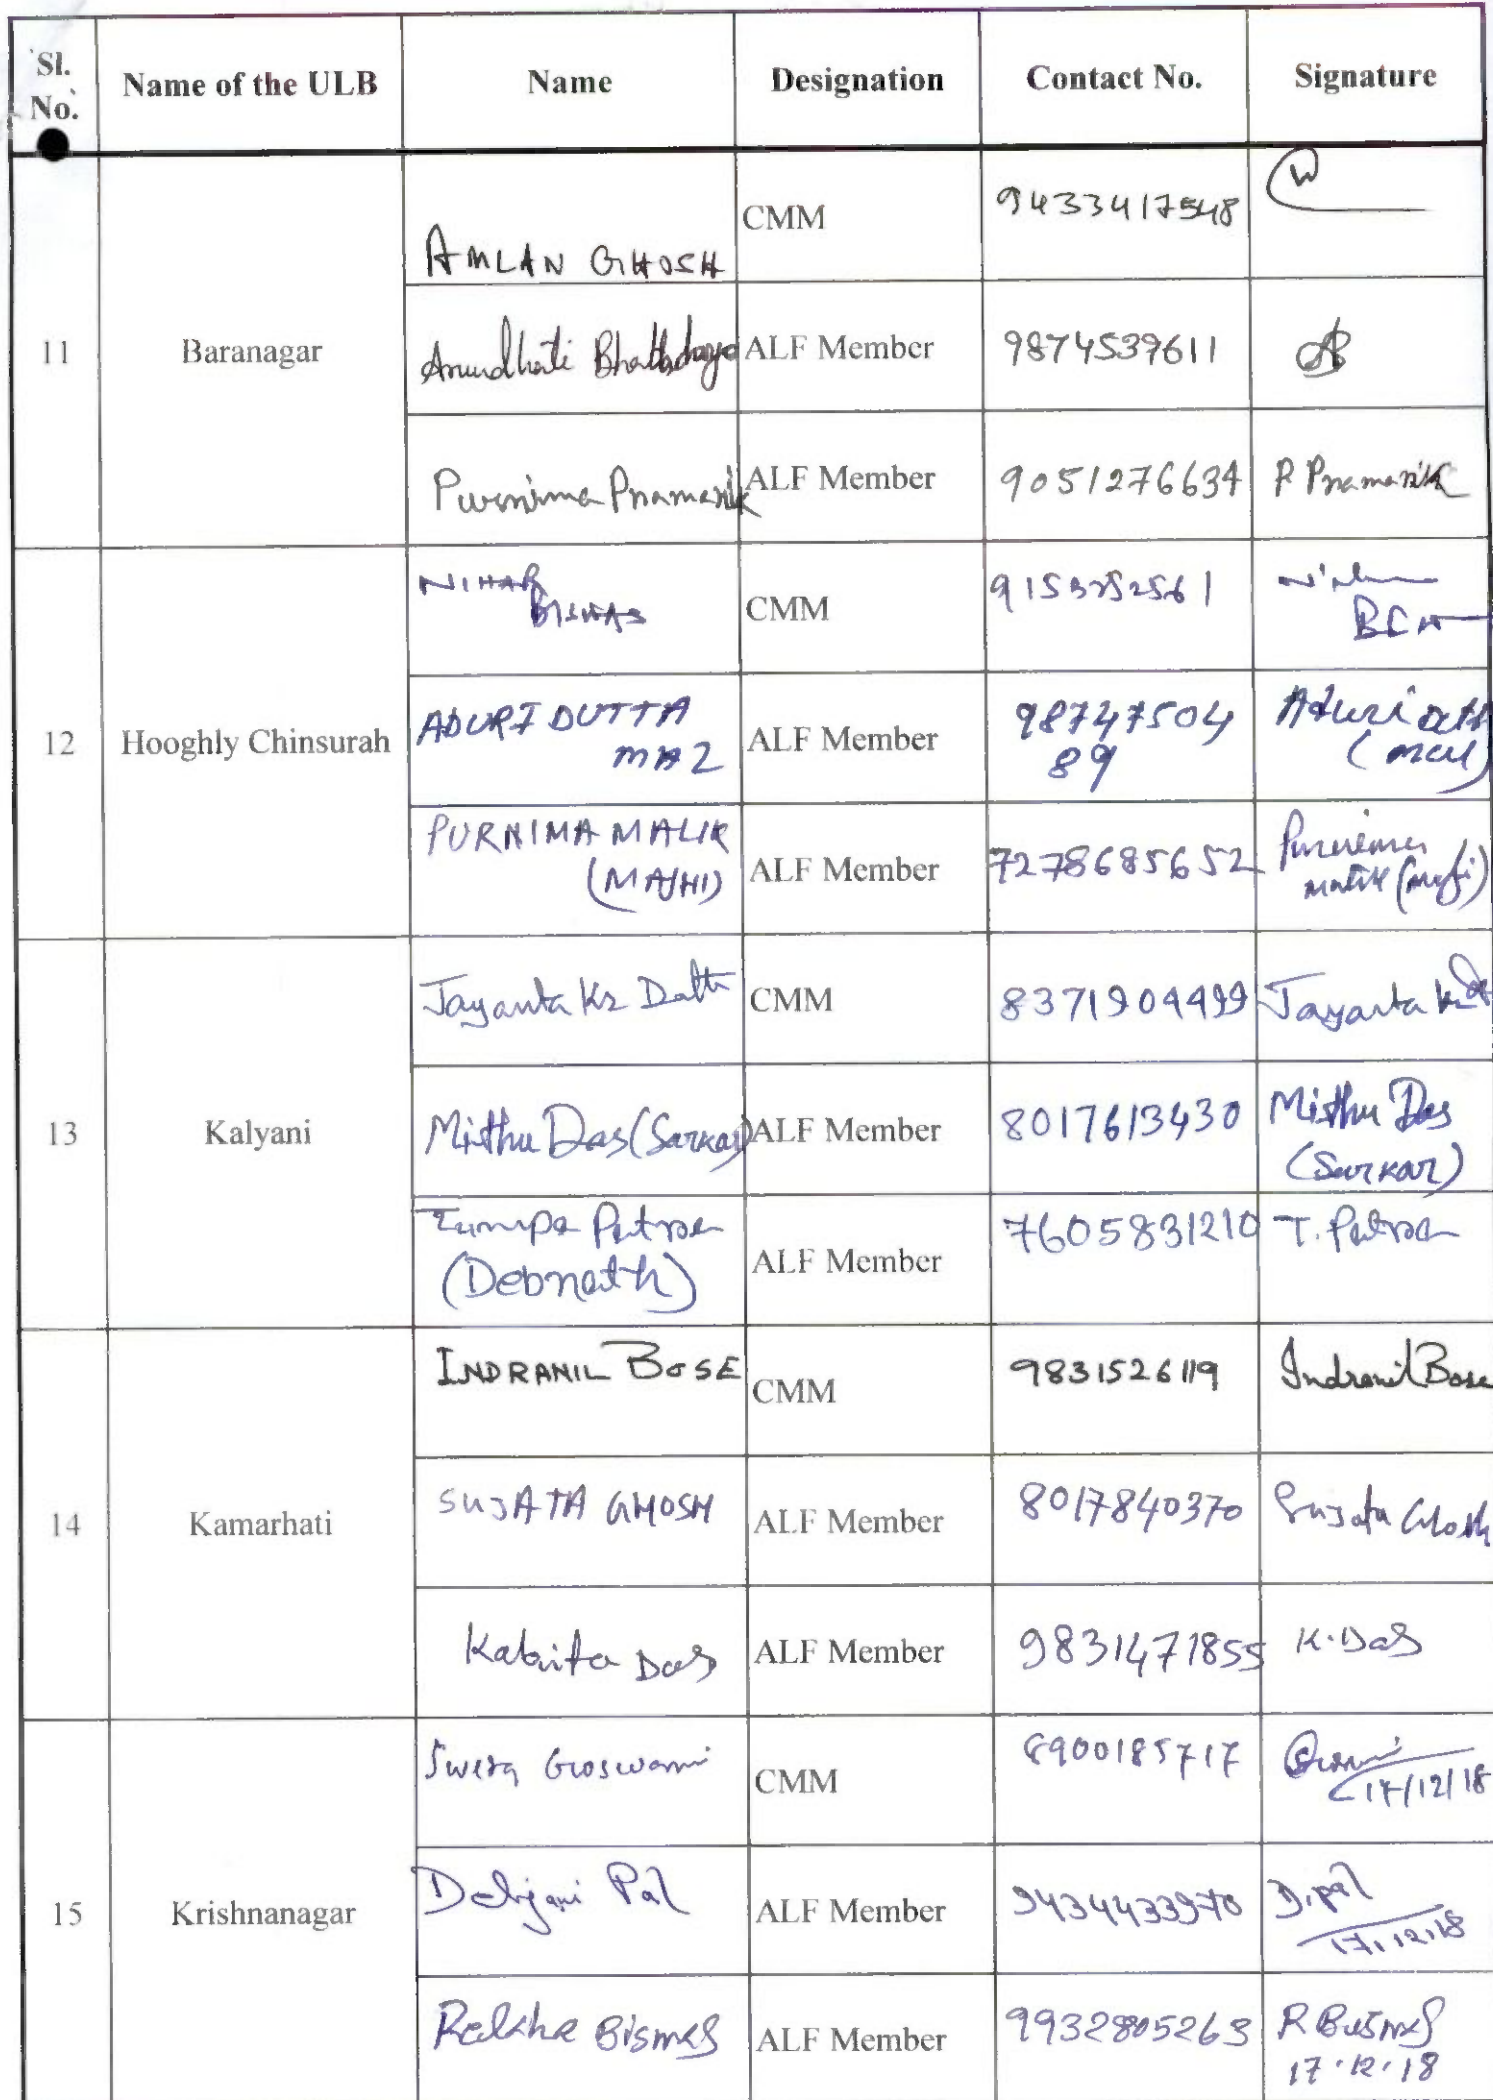 Sl. No. Name of the ULB Name Designation Contact No. Signature
11 Baranagar
AMLAN GHOSH CMM 9433417548
Arundhati Bhattacharya ALF Member 9874539611
Purnima Pramanik ALF Member 9051276634 P Pramanik
12 Hooghly Chinsurah
NIHAR BISWAS CMM
ADURI DUTTA ALF Member 9874750489 Aduri
PURNIMA MALIK (MAJHI) ALF Member 7278685652
13 Kalyani
Jayanta Kr Dutta CMM 8371904499 Jayanta
Mithu Das (Sarkar) ALF Member 8017613430 Mithu Das (Sarkar)
Tumpa Patra (Debnath) ALF Member 7605831210 T. Patra
14 Kamarhati
INDRANIL BOSE CMM 9831526119 Indranil Bose
SUJATA GHOSH ALF Member 8017840370 Sujata Ghosh
Kabita Das ALF Member 9831471855 K. Das
15 Krishnanagar
Goswami CMM 8900185717 17/12/18
Debjani Pal ALF Member 9434433970 D. Pal 17.12.18
Rekha Biswas ALF Member 9932805263 R Biswas 17.12.18